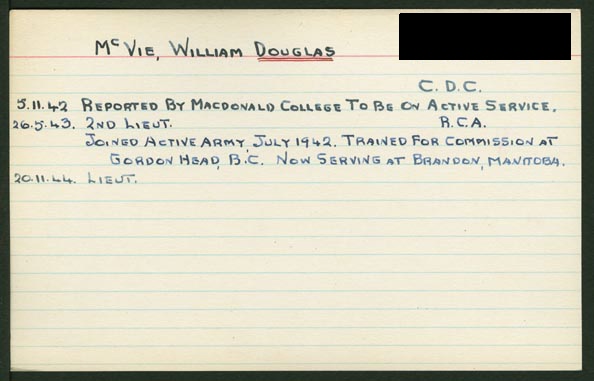 McVie, William Douglas
C.D.C.
5.11.42 Reported By Macdonald College To Be On Active Service.
26.5.43. 2nd Lieut. R.C.A.
Joined Active Army, July 1942. Trained For Commission at
Gordon Head, B.C. Now Serving at Brandon, Manitoba.
20.11.44. Lieut.